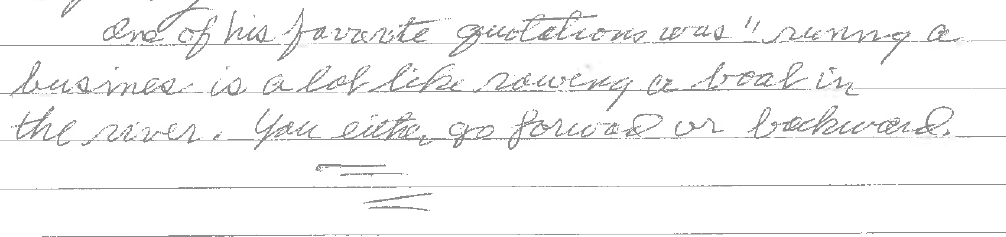 one of his favorite quotations was "running a
business is a lot like rowing a boat in
the river. You either go forward or backward.